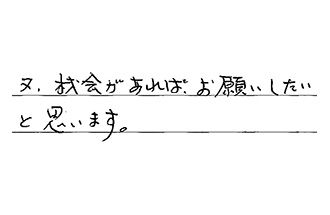 又、機会があれば、お願いしたい
と思います。